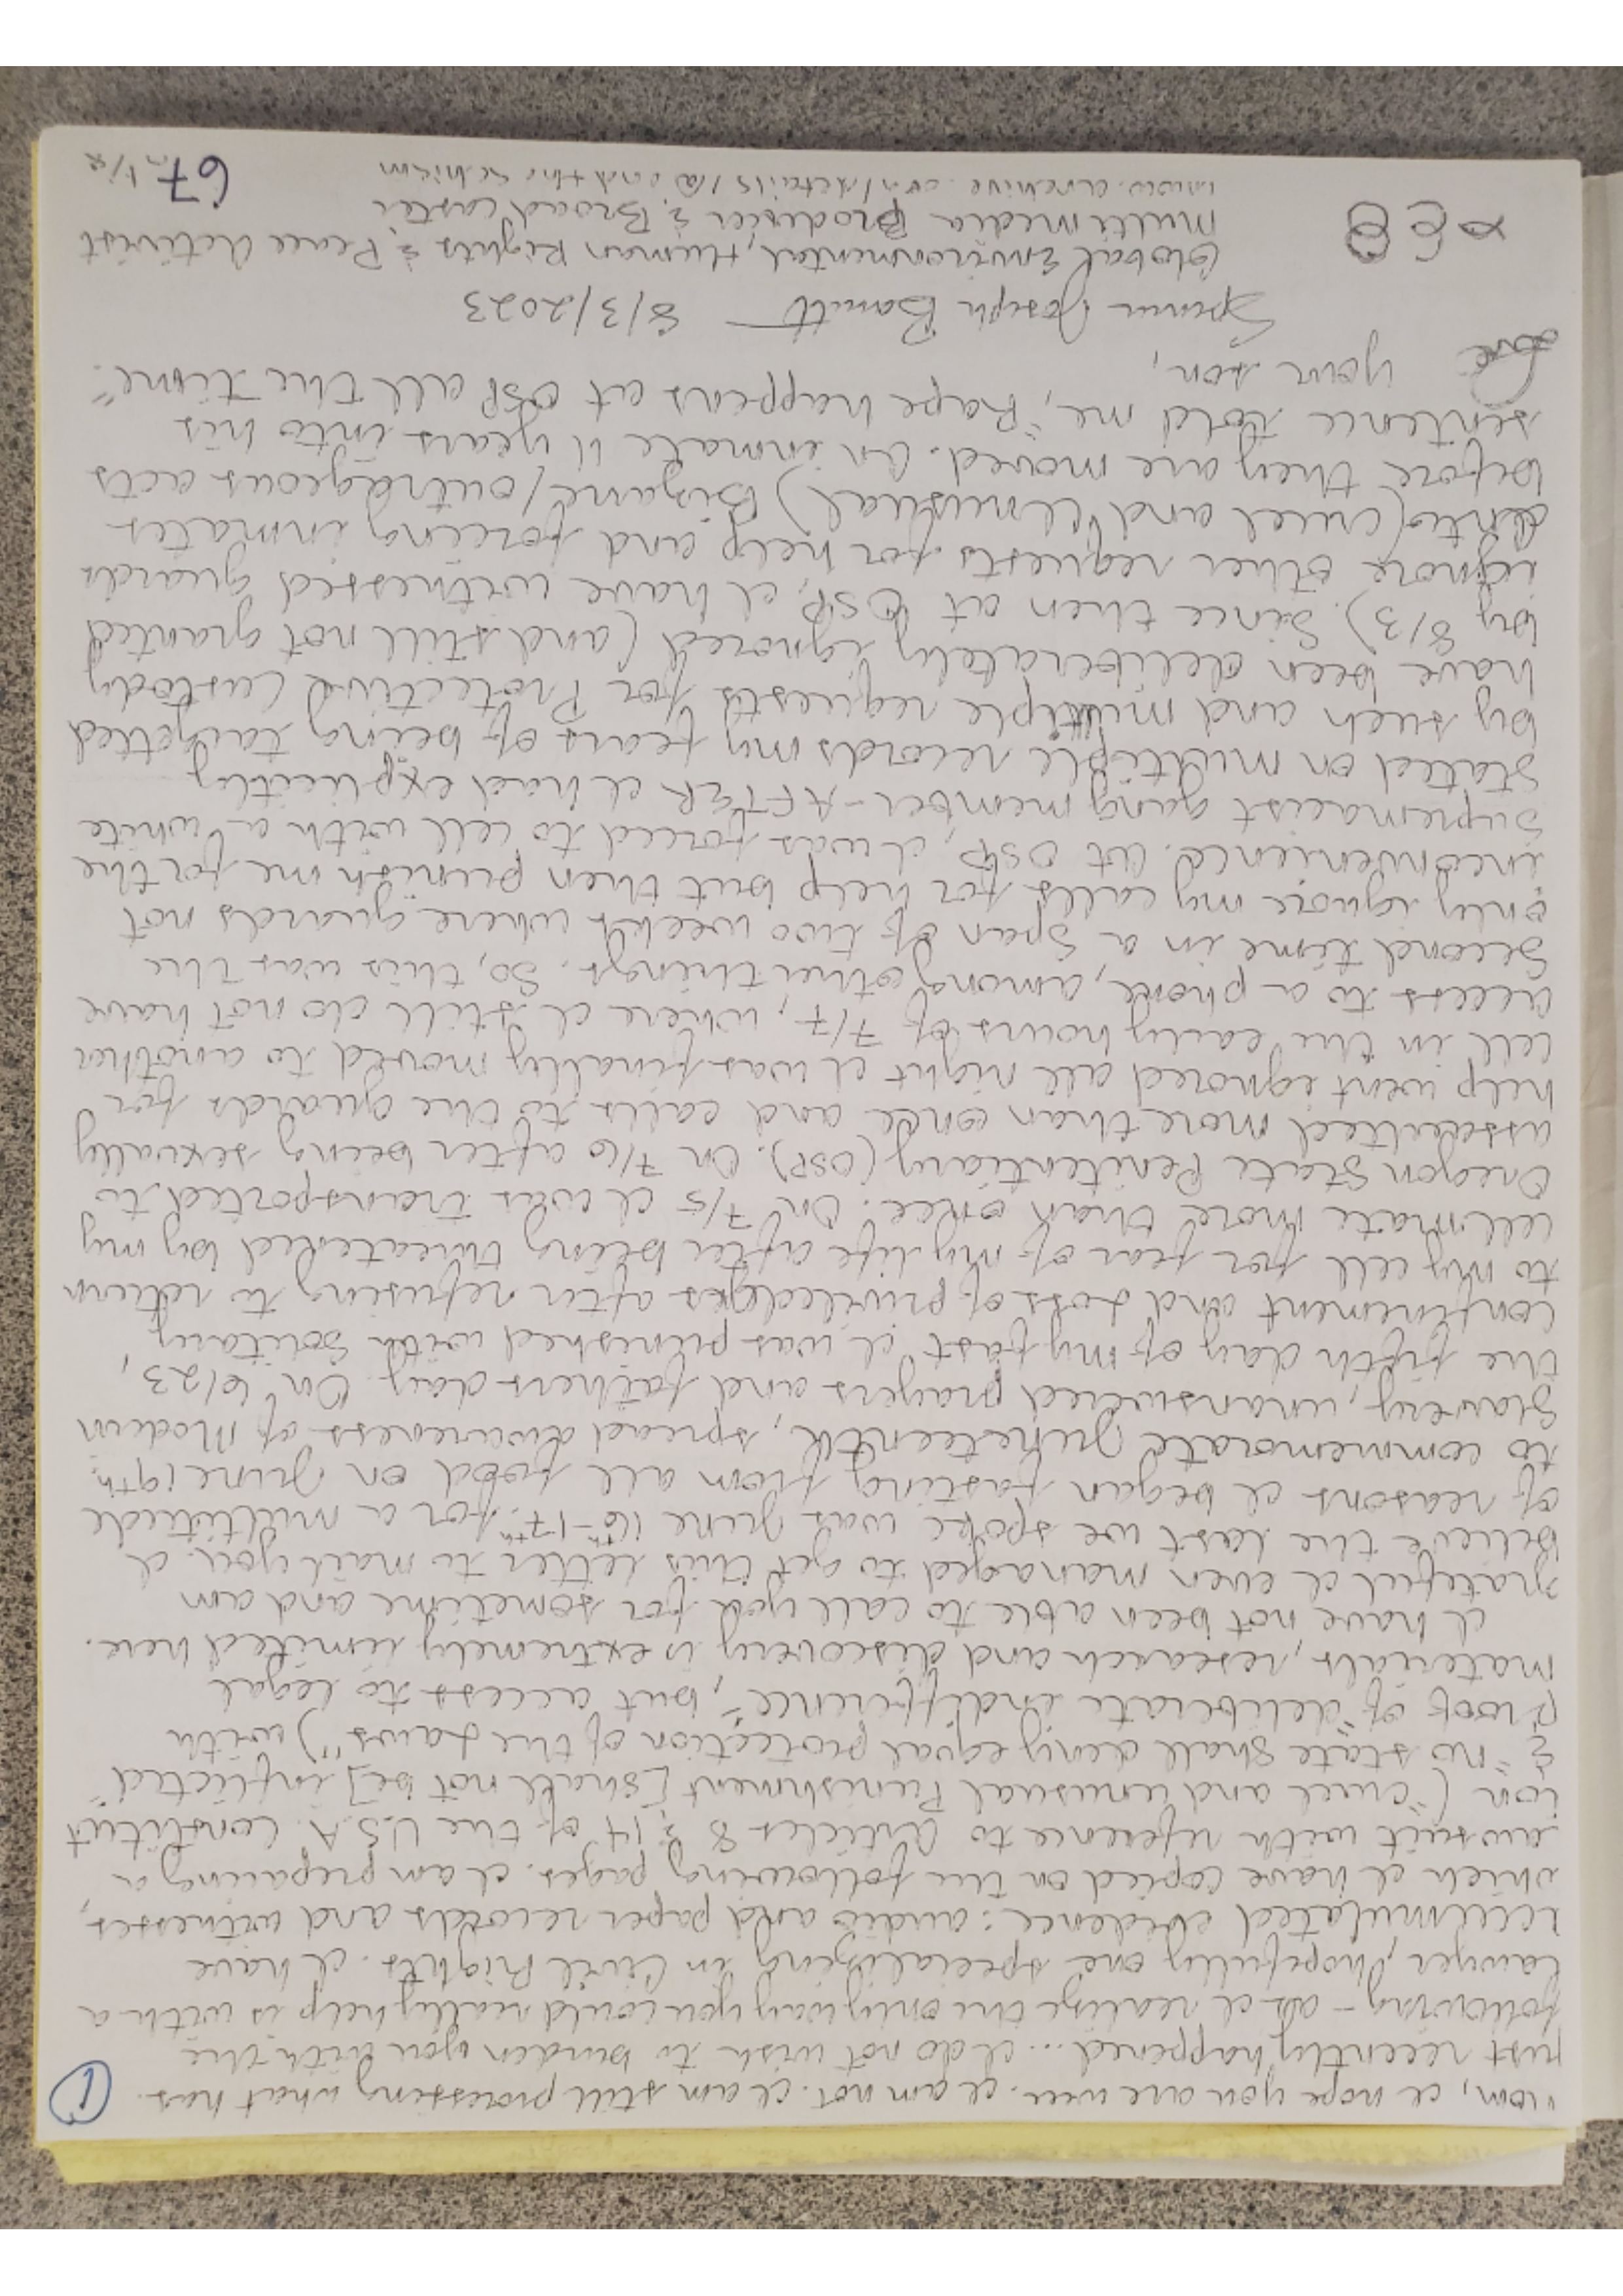 ①
Mom, I hope you are well. I am not. I am still processing what has
just recently happened... I do not wish to burden you with the
following - as I realize the only way you could really help is with a
lawyer, hopefully one specializing in Civil Rights. I have
accumulated evidence: audio and paper records and witnesses,
which I have copied on the following pages. I am preparing a
lawsuit with reference to Articles 8 & 14 of the U.S.A. Constitut
ion ("cruel and unusual Punishment [shall not be] inflicted"
& "no state shall deny equal protection of the Laws") with
proof of "deliberate indifference", but access to legal
materials, research and discovery is extremely limited here.
I have not been able to call you for sometime and am
grateful I even managed to get this letter to mail you. I
believe the last we spoke was June 16th-17th. For a multitude
of reasons I began fasting from all food on June 19th:
to commemorate Juneteenth, spread awareness of Modern
Slavery, unanswered prayers and fathers day. On 6/23,
the fifth day of my fast I was punished with Solitary
confinement and Loss of priviledges after refusing to return
to my cell for fear of my life after being threatened by my
cellmate more than once. On 7/5 I was transported to
Oregon State Penitentiary (OSP). On 7/6 after being sexually
assaulted more than once and calls to the guards for
help went ignored all night I was finally moved to another
cell in the early hours of 7/7, where I still do not have
access to a phone, among other things. So, this was the
second time in a span of two weeks where guards not
only ignore my calls for help but then punish me for the
inconvenience. At OSP, I was forced to cell with a white
supremacist gang member - AFTER I had explicitly
stated on multiple records my fears of being targetted
by such and multiple requests for Protective Custody
have been deliberately ignored (and still not granted
by 8/3). Since then at OSP, I have witnessed guards
ignore other requests for help and forcing inmates
into (cruel and unusual) bizarre/outrageous acts
before they are moved. An inmate 11 years into his
sentence told me, "Rape happens at OSP all the time."
Love your son,
Spenser Joseph Barnett 8/3/2023
Global Environmental, Human Rights & Peace Activist
Multimedia Producer & Broadcaster
67